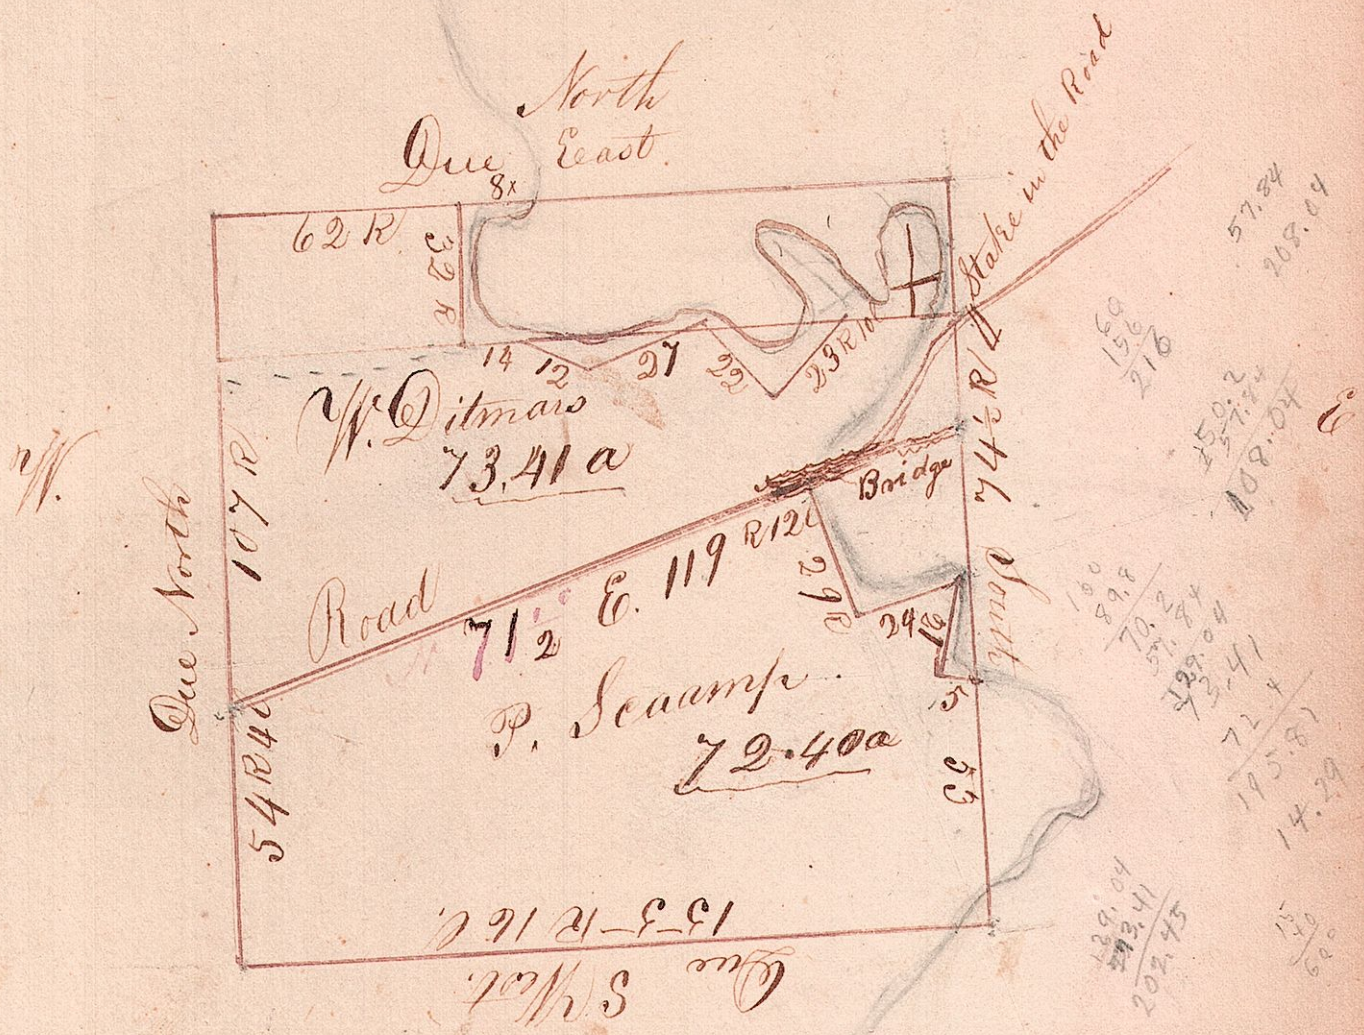 North
Due Eeast.
8x
Stake in the Road
62 R
32 R
14 12 27 22 23 R 10 l
W. Ditmars
73,41 a
W.
E
Due North
107 R
74½ R 11
Bridge
Road
71½° E. 119 R 12 l
29 R
24
21
South
P. Scaamp
72.40a
5
53
54 R 4 l
153 R 16 l.
Due
S West.
57.84
208.04
60
156
216
150.2
57.84
208.04
160
89.8
70.2
57.84
129.04
73.41
72.4
195.81
14.29
129.04
73.41
202.45
15
40
600